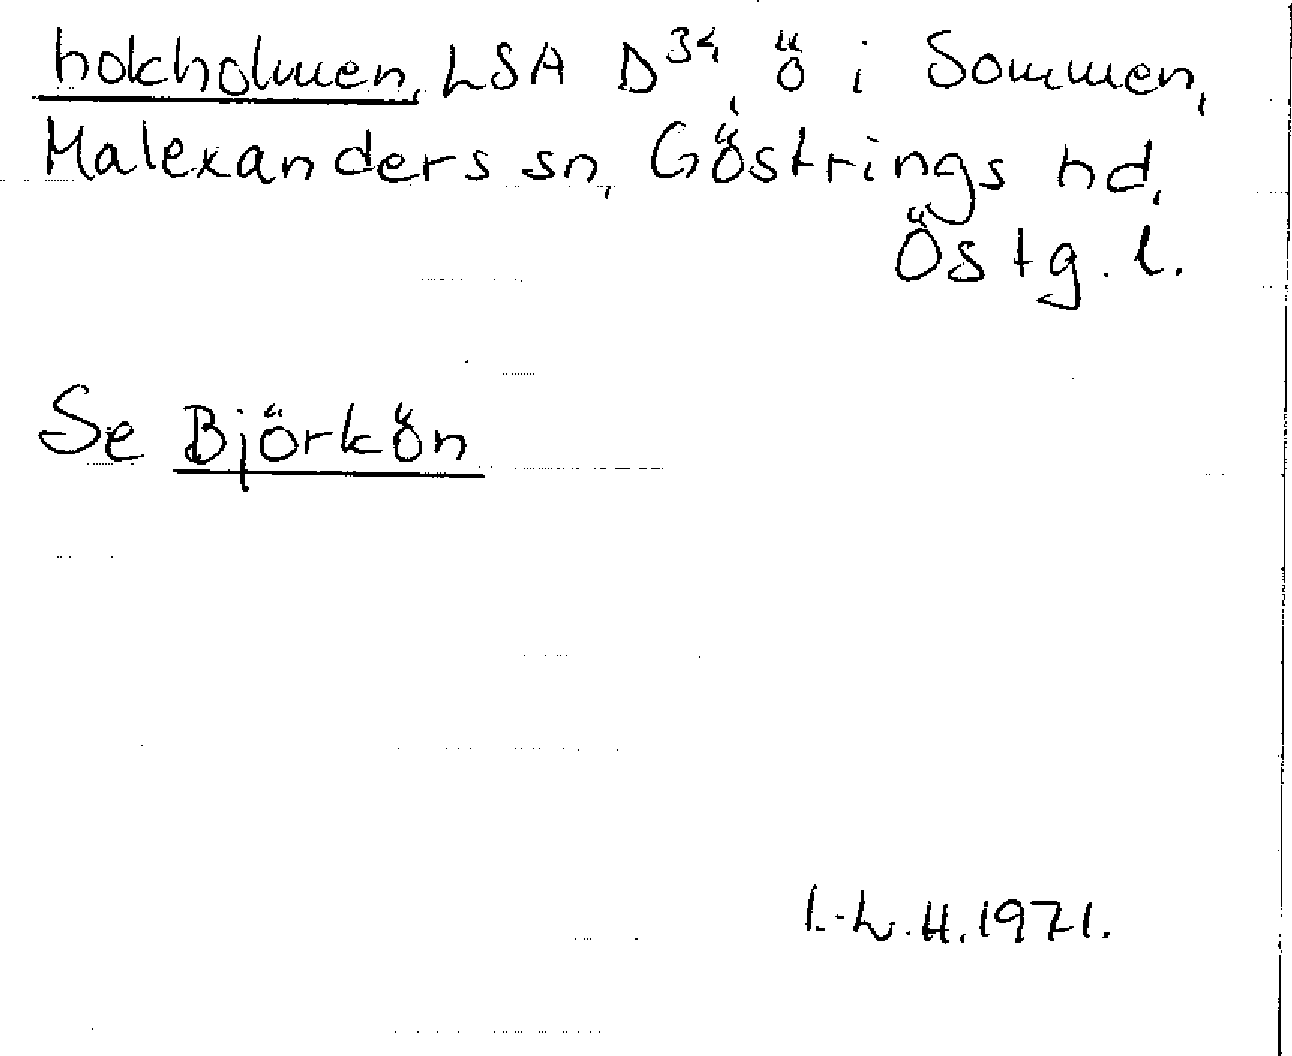 holcholmen, LSA D34, ö i Sommen,
Malexanders sn, Göstrings hd,
Östg. l.
Se Björkön
I.-L. H. 1971.